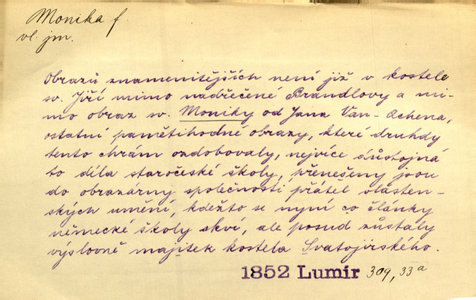 Monika f.
vl. jm.
Obrazů znamenitějších není již v kostele
sv. Jiří mimo nadřečené Brandlovy a mi-
mo obraz sv. Moniky od Jana Van-Achena,
ostatní pamětihodné obrazy, které druhdy
tento chrám ozdobovaly, nejvíce důstojná
to díla staročeské školy, přenešeny jsou
do obrazárny společnosti přátel vlasten-
ských umění, kdežto se nyní co články
německé školy skví, ale posud zůstaly
výslovně majitek kostela Svatojirského.
1852 Lumír 309, 33a